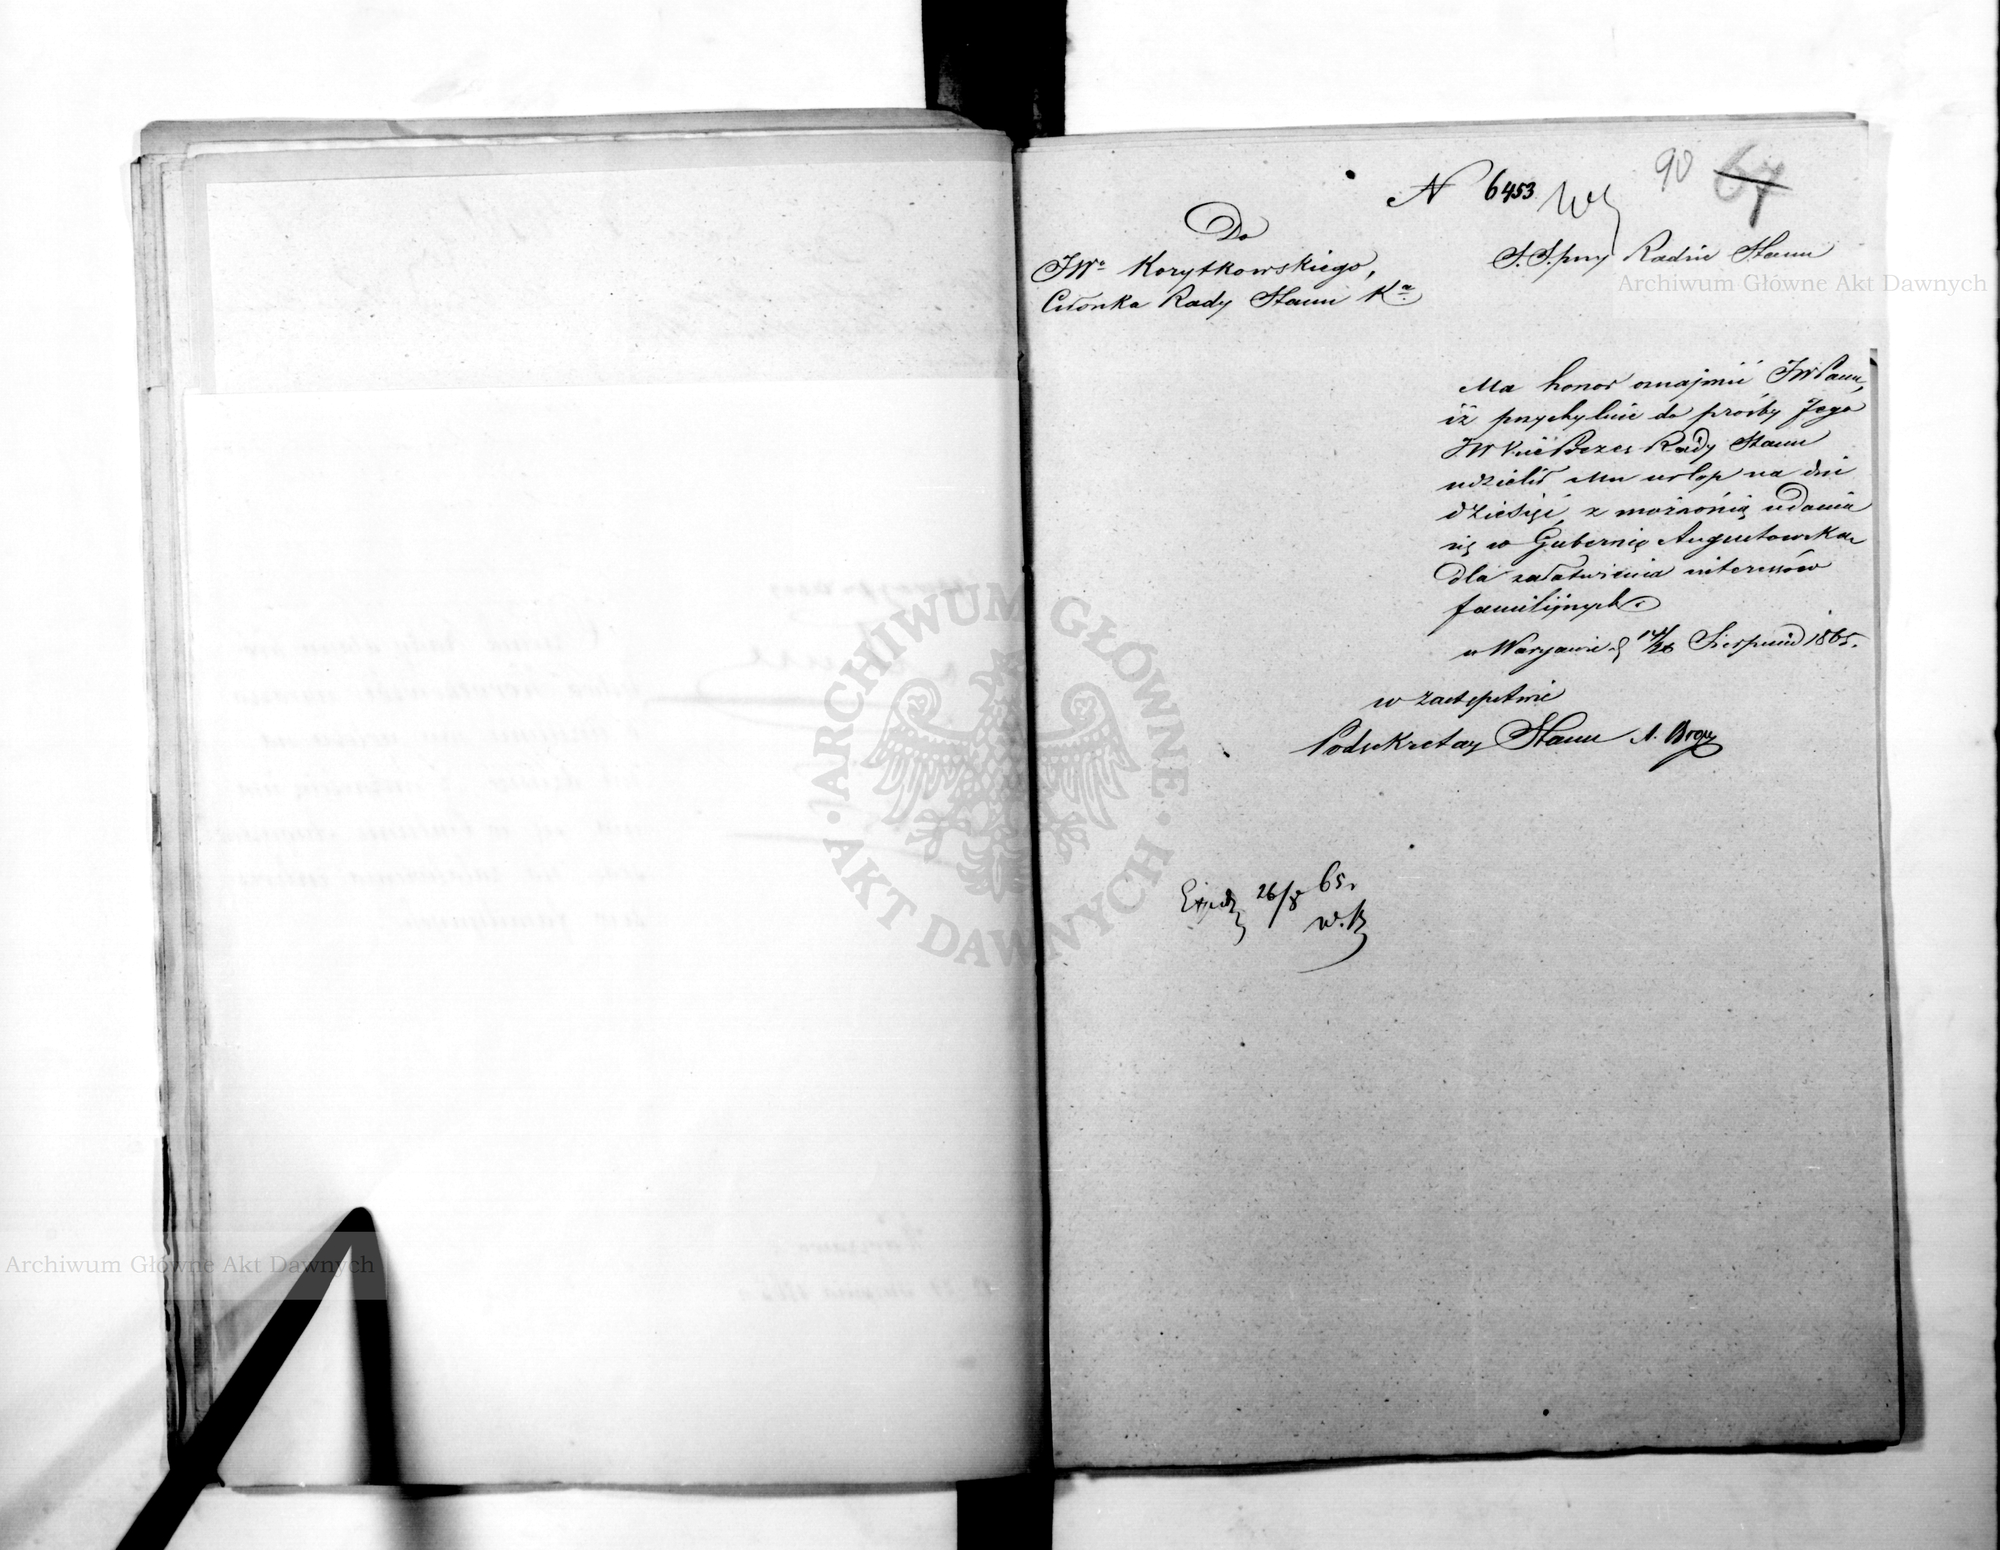 90 67
N 6453
Do
JWo Korytkowskiego,
Członka Rady Stanu Ka
S. S. przy Radzie Stanu
Ma honor oznajmić JWPanu,
iż przychylnie do prośby Jego
JW Vice Prezes Rady Stanu
udzielił Mu urlop na dni
dziesięć, z możnością udania
się w Gubernię Augustowską
dla załatwienia interessów
familijnych.
w Warszawie d 14/26 Sierpnia 1865.
w zastępstwie
Podsekretarz Stanu A.
26/8 65.
w. K
Archiwum Główne Akt Dawnych
ARCHIWUM GŁÓWNE
AKT DAWNYCH
Archiwum Główne Akt Dawnych